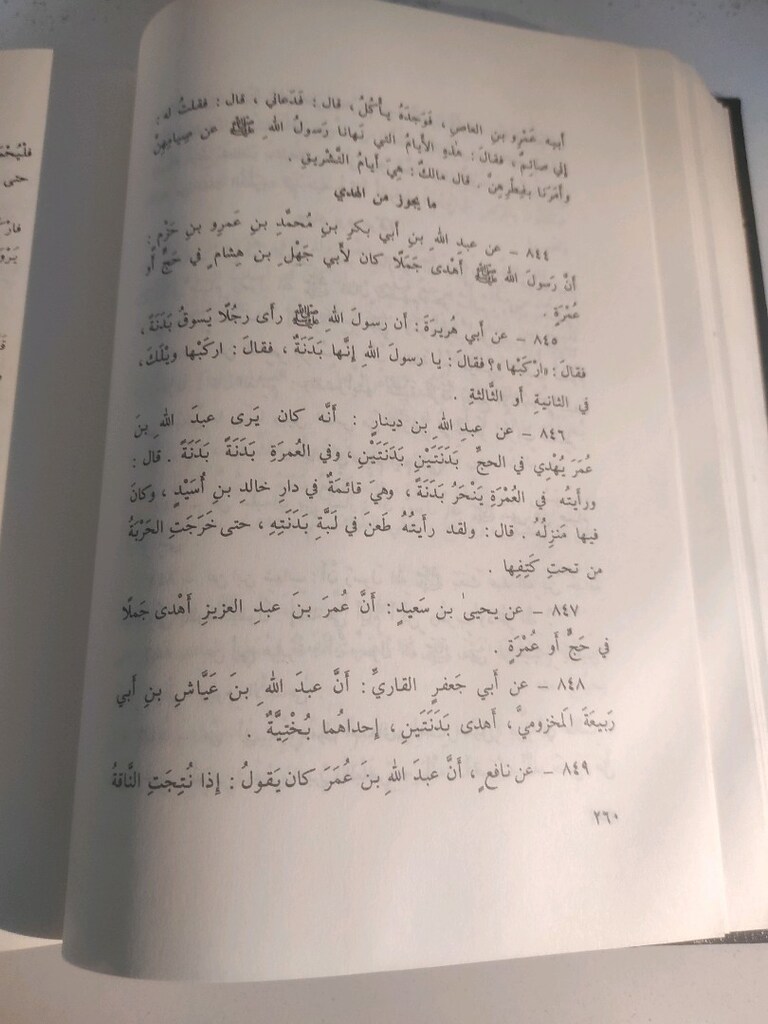 أبيه عَمْرِو بنِ العاصِ ، فَوَجَدَهُ يأْكُلُ ، قال : فَدَعاني ، قال : فقلتُ له :
إني صائمٌ ، فقالَ : هذهِ الأيامُ التي نَهانا رَسولُ اللهِ ﷺ عن صيامِهِنَّ
وأمَرَنا بفِطْرِهِنَّ . قال مالكٌ : هِيَ أيامُ التَّشْريقِ .
ما يجوز من الهدي
٨٤٤ – عن عبدِ اللهِ بنِ أبي بكرِ بنِ مُحمَّدِ بنِ عَمرِو بنِ حَزْمٍ :
أنَّ رَسولَ اللهِ ﷺ أهْدى جَمَلًا كان لأبي جَهْلِ بن هِشامٍ في حَجٍّ أو
عُمْرَةٍ .
٨٤٥ – عن أبي هُريرَةَ : أن رسولَ اللهِ ﷺ رأى رجُلًا يَسوقُ بَدَنَةً ،
فقالَ : «ارْكَبْها» ؟ فقالَ : يا رسولَ اللهِ إنَّها بَدَنَةٌ ، فقالَ : اركَبْها ويْلَكَ ،
في الثانيةِ أو الثَّالثةِ .
٨٤٦ – عن عبدِ اللهِ بن دينارٍ : أنَّه كان يَرى عبدَ اللهِ بنَ
عُمَرَ يُهْدِي في الحجِّ بَدَنَتَيْنِ بَدَنَتَيْنِ ، وفي العُمرَةِ بَدَنَةً بَدَنَةً . قال :
ورأيتُه في العُمْرَةِ يَنْحَرُ بَدَنَةً ، وهيَ قائمَةٌ في دارِ خالدِ بنِ أُسَيْدٍ ، وكانَ
فيها مَنزِلُهُ . قال : ولقد رأيتُهُ طَعنَ في لَبَّةِ بَدَنَتِهِ ، حتى خَرَجَتِ الحَرْبَةُ
من تحتِ كَتِفِها .
٨٤٧ – عن يحيىٰ بن سَعيدٍ : أنَّ عُمرَ بنَ عبدِ العزيزِ أهْدى جَملًا
في حَجٍّ أو عُمْرَةٍ .
٨٤٨ – عن أبي جَعفرٍ القاريِّ : أنَّ عبدَ اللهِ بنَ عَيَّاشِ بنِ أبي
رَبيعَةَ المَخزوميَّ ، أهدى بَدَنَتَينِ ، إحداهُما بُخْتِيَّةٌ .
٨٤٩ – عن نافعٍ ، أنَّ عبدَ اللهِ بنَ عُمَرَ كان يَقولُ : إذا نُتِجَتِ النَّاقةُ
٢٦٠